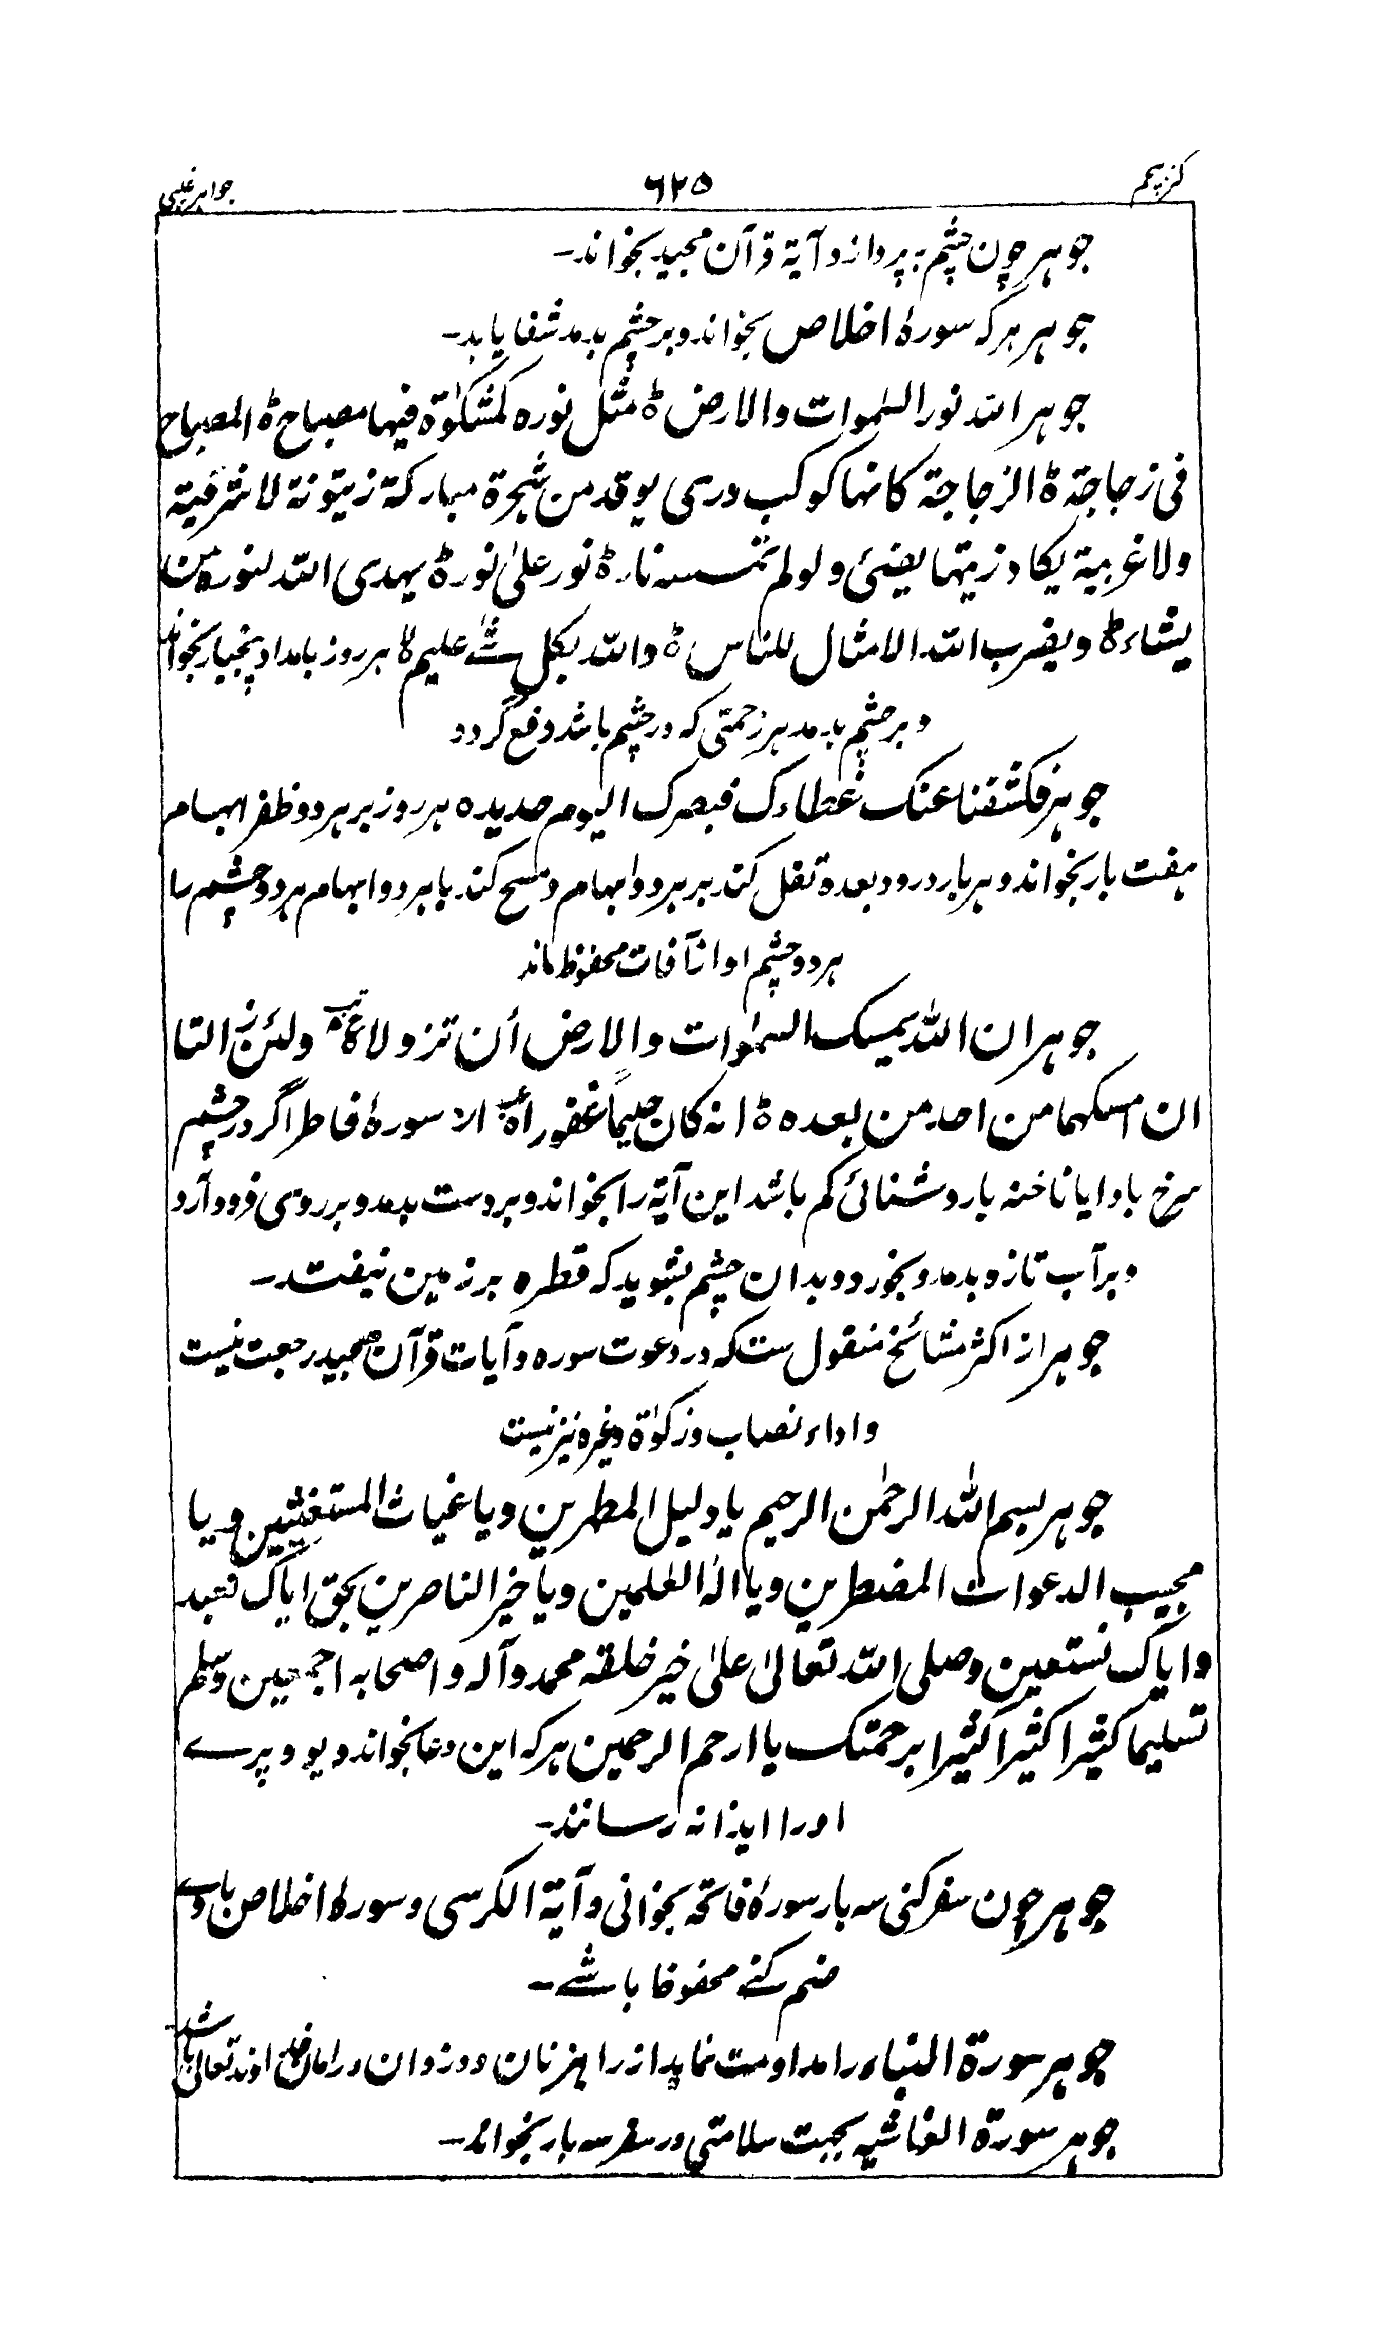 کنز پنجم ۶۲۵ جواہر غیبی
جوہر چون چشم بہ پردازد آیۃ قرآن مجید بخواند۔
جوہر ہرکہ سورۂ اخلاص بخواند و بر چشم بدمد شفا یابد۔
جوہر اللہ نور السمٰوات والارض ۃ مثل نورہ کمشکوٰۃ فیہا مصباح ۃ المصباح
فی زجاجۃ ۃ الزجاجۃ کانہا کوکب دری یوقد من شجرۃ مبارکۃ زیتونۃ لا شرقیۃ
ولا غربیۃ یکاد زیتہا یضیٔ ولو لم تمسسہ نار ۃ نور علیٰ نور ۃ یہدی اللہ لنورہ من
یشاء ۃ ویضرب اللہ الامثال للناس ۃ واللہ بکل شئ علیم ۃ ہر روز بامداد پنجبار بخواند
و بر چشم بدمد ہر زحمتی کہ در چشم باشد دفع گردد
جوہر فکشفنا عنک غطاءک فبصرک الیوم حدیدہ ہر روز بر ہر دو ظفر ابہام
ہفت بار بخواند و ہر بار درود بعدہ تفل کند بر ہر دو ابہام و مسح کند با ہر دو ابہام ہر دو چشم را
ہر دو چشم او از آفات محفوظ ماند
جوہر ان اللہ یمسک السمٰوات والارض أن تزولا ولئن زالتا
ان امسکہما من احد من بعدہ ۃ انہ کان حلیماً غفوراً سورۂ فاطر اگر در چشم
سرخ باد یا ناخنہ یا روشنائی کم باشد این آیۃ را بخواند و بر دست بدمد و بر روی فرود آرد
و بر آب تازہ بدمد و بخورد و بدان چشم بشوید کہ قطرہ بر زمین نیفتد۔
جوہر از اکثر مشائخ منقول ست کہ در دعوت سورہ و آیات قرآن مجید رجعت نیست
و اداء نصاب و زکوٰۃ وغیرہ نیز نیست
جوہر بسم اللہ الرحمٰن الرحیم یا دلیل المطہرین ویا غیاث المستغیثین ویا
مجیب الدعوات المضطرین ویا الہ العٰلمین ویا خیر الناصرین بحق ایاک نعبد
وایاک نستعین وصلی اللہ تعالیٰ علیٰ خیر خلقہ محمد وآلہ واصحابہ اجمعین وسلم
تسلیما کثیرا کثیرا کثیرا برحمتک یا ارحم الرحمین ہر کہ این دعا بخواند دیو و پرے
اورا ایذا نہ رسانند۔
جوہر چون سفر کنی سہ بار سورۂ فاتحہ بخوانی و آیۃ الکرسی و سورۂ اخلاص باوے
ضم کنے محفوظ باشے۔
جوہر سورۃ النباء را مداومت نماید از راہزنان و دزدان در امان خداوند تعالیٰ باشد
جوہر سورۃ الغاشیہ بجہت سلامتی در سفر سہ بار بخواند۔